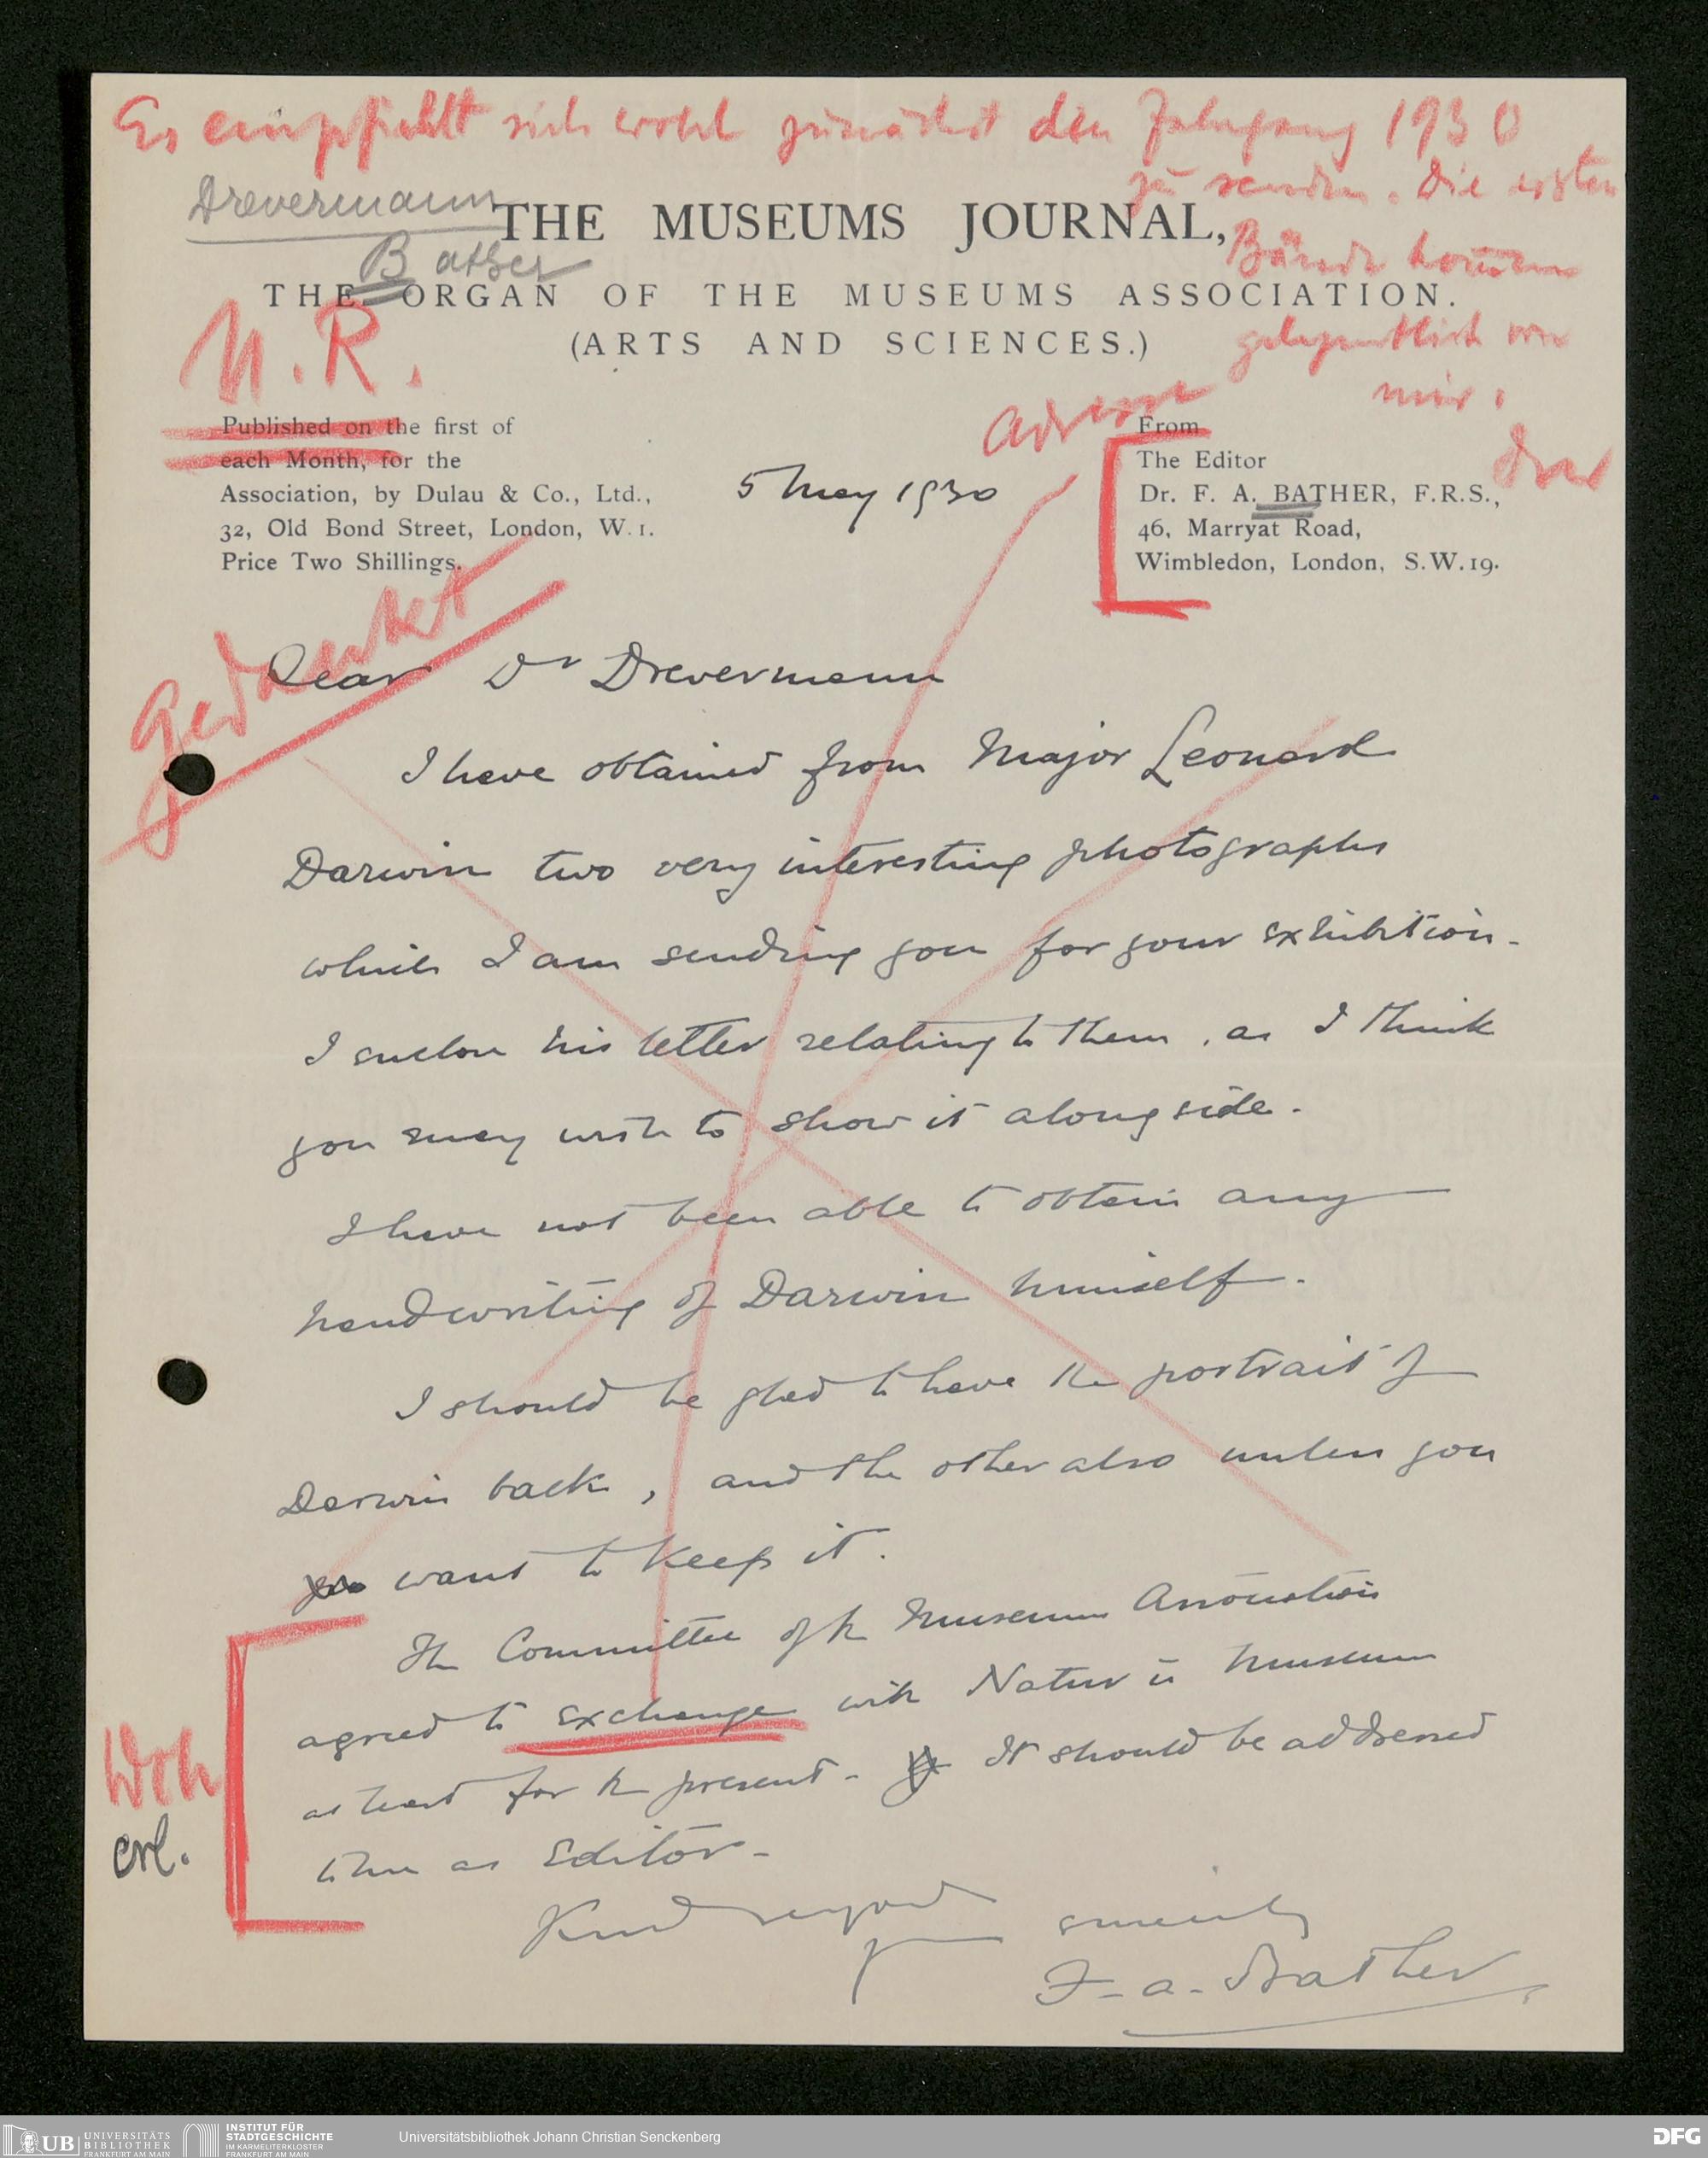 Es empfiehlt sich wohl zunächst den Jahrgang 1930
zu senden. Die ersten
Bände kommen
gelegentlich von
mir.
Drev
Drevermann
Bather
THE MUSEUMS JOURNAL,
THE ORGAN OF THE MUSEUMS ASSOCIATION.
(ARTS AND SCIENCES.)
N.R.
Published on the first of
each Month, for the
Association, by Dulau & Co., Ltd.,
32, Old Bond Street, London, W.1.
Price Two Shillings.
5 May 1930
Adresse
From
The Editor
Dr. F. A. BATHER, F.R.S.,
46, Marryat Road,
Wimbledon, London, S.W.19.
Gedankt
Dear Dr Drevermann
I have obtained from Major Leonard
Darwin two very interesting photographs
which I am sending you for your exhibition.
I enclose his letter relating to them, as I think
you may wish to show it alongside.
I have not been able to obtain any
handwriting of Darwin himself.
I should be glad to have the portrait of
Darwin back, and the other also unless you
want to keep it.
The Committee of the Museums Association
agreed to exchange with Natur u Museum
at least for the present. It should be addressed
to me as Editor.
erl.
Kind regards
sincerely
F. A. Bather
UB UNIVERSITÄTS
BIBLIOTHEK
FRANKFURT AM MAIN
INSTITUT FÜR
STADTGESCHICHTE
IM KARMELITERKLOSTER
FRANKFURT AM MAIN
Universitätsbibliothek Johann Christian Senckenberg
DFG